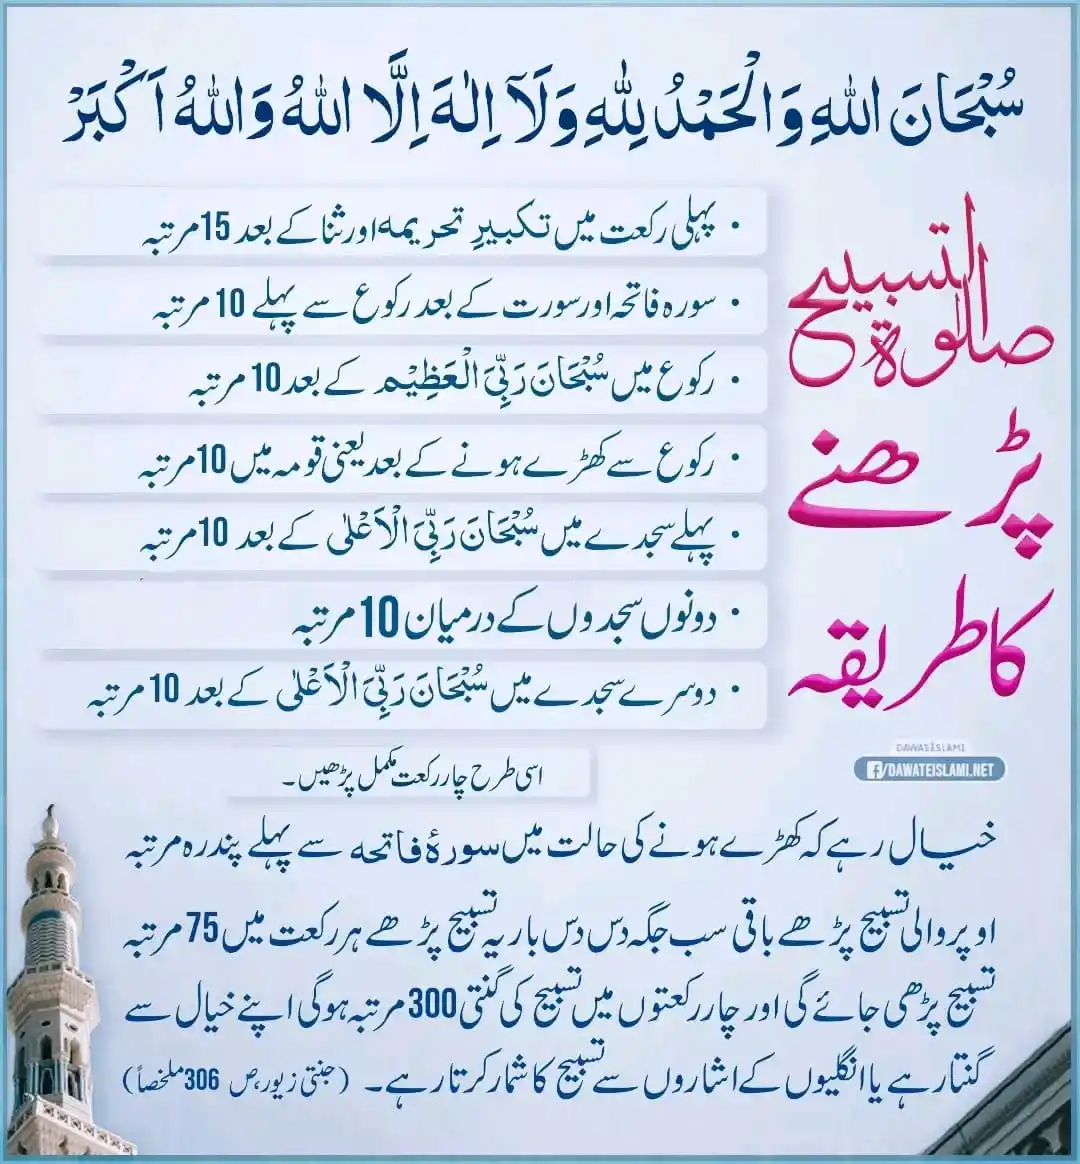 سُبْحَانَ اللهِ وَالْحَمْدُ لِلّٰهِ وَلَآ اِلٰهَ اِلَّا اللهُ وَاللهُ اَکْبَرْ
صلوٰۃ التسبیح
پڑھنے
کا طریقہ
• پہلی رکعت میں تکبیرِ تحریمہ اور ثنا کے بعد 15 مرتبہ
• سورہ فاتحہ اور سورت کے بعد رکوع سے پہلے 10 مرتبہ
• رکوع میں سُبْحَانَ رَبِّیَ الْعَظِیْم کے بعد 10 مرتبہ
• رکوع سے کھڑے ہونے کے بعد یعنی قومہ میں 10 مرتبہ
• پہلے سجدے میں سُبْحَانَ رَبِّیَ الْاَعْلٰی کے بعد 10 مرتبہ
• دونوں سجدوں کے درمیان 10 مرتبہ
• دوسرے سجدے میں سُبْحَانَ رَبِّیَ الْاَعْلٰی کے بعد 10 مرتبہ
DAWATEISLAMI
f/DAWATEISLAMI.NET
اسی طرح چار رکعت مکمل پڑھیں۔
خیال رہے کہ کھڑے ہونے کی حالت میں سورۂ فاتحہ سے پہلے پندرہ مرتبہ
اوپر والی تسبیح پڑھے باقی سب جگہ دس دس بار یہ تسبیح پڑھے ہر رکعت میں 75 مرتبہ
تسبیح پڑھی جائے گی اور چار رکعتوں میں تسبیح کی گنتی 300 مرتبہ ہوگی اپنے خیال سے
گنتا رہے یا انگلیوں کے اشاروں سے تسبیح کا شمار کرتا رہے۔ (جنتی زیور، ص 306 ملخصاً)